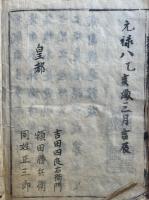 元禄八乙亥歳三月吉辰
皇都
吉田四良右衛門
額田勝兵衛
同姓正三郎